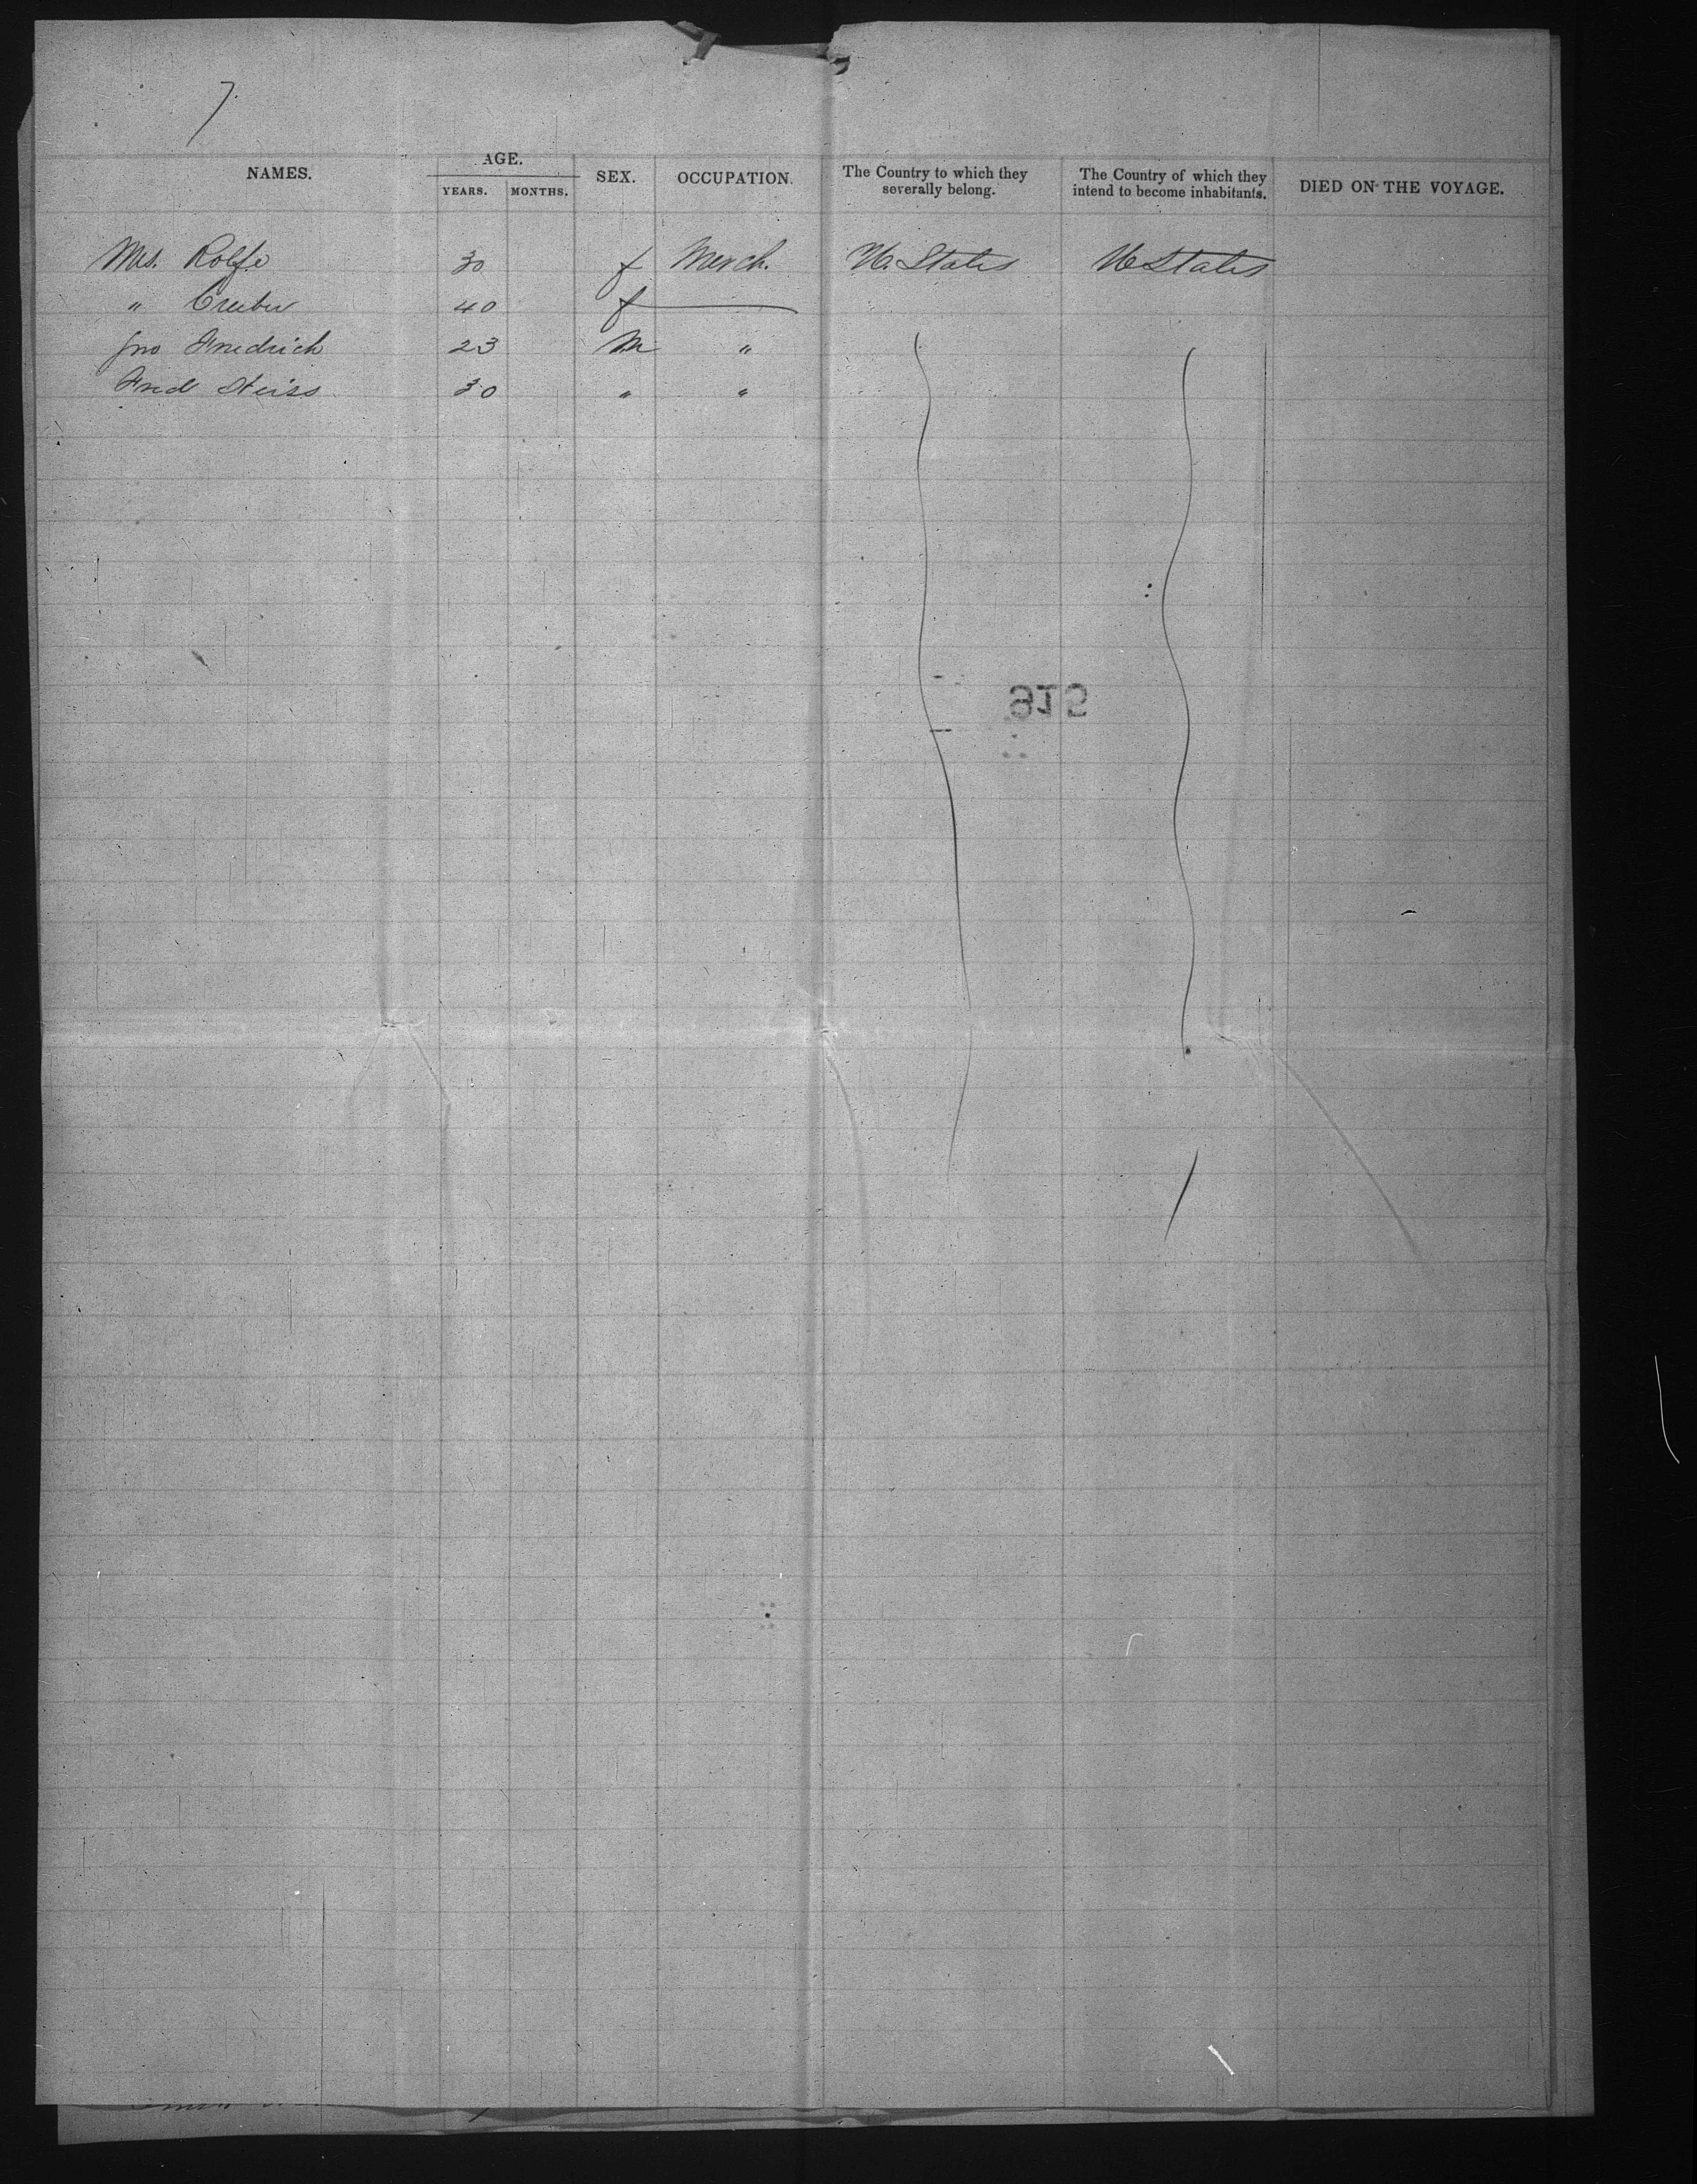 7.
NAMES. AGE. YEARS. MONTHS. SEX. OCCUPATION. The Country to which they severally belong. The Country of which they intend to become inhabitants. DIED ON THE VOYAGE.
Mrs. Rolfe 30 f Merch. U. States U States
" 40 f
Jno Friedrich 23 M "
Fred 30 " "